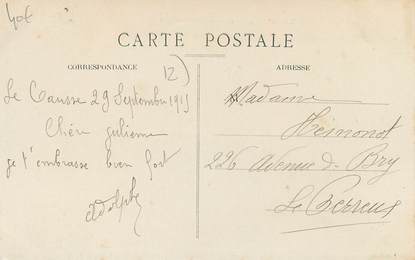 40€
CARTE POSTALE
CORRESPONDANCE
12)
Le Causse 29 Septembre 1915
Chère julienne
je t'embrasse bien fort
Adolphe
ADRESSE
Madame
Hemonot
226 Avenue de Bry
Le Perreux